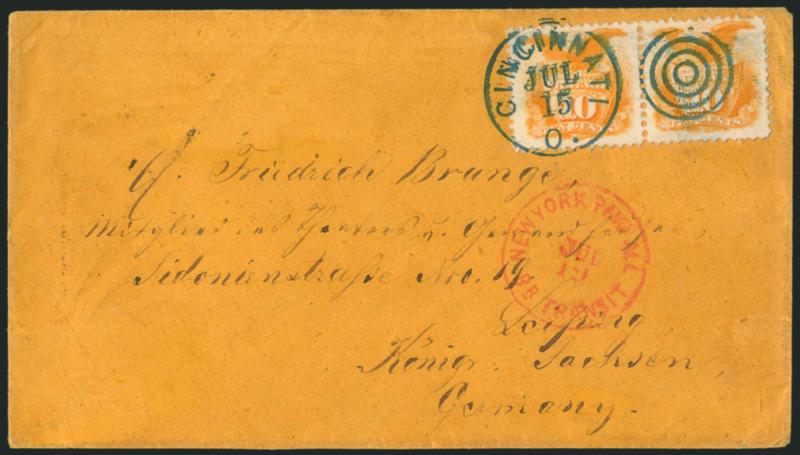 CINCINNATI
JUL
15
O.
10
TEN CENTS
10
TEN CENTS
Friedrich Brunge,
Mitglied des Theaters u. Gewandhauses,
Sidonienstraße No. 19
Leipzig,
Königr. Sachsen,
Germany.
NEW YORK PAID ALL
JUL
BR TRANSIT